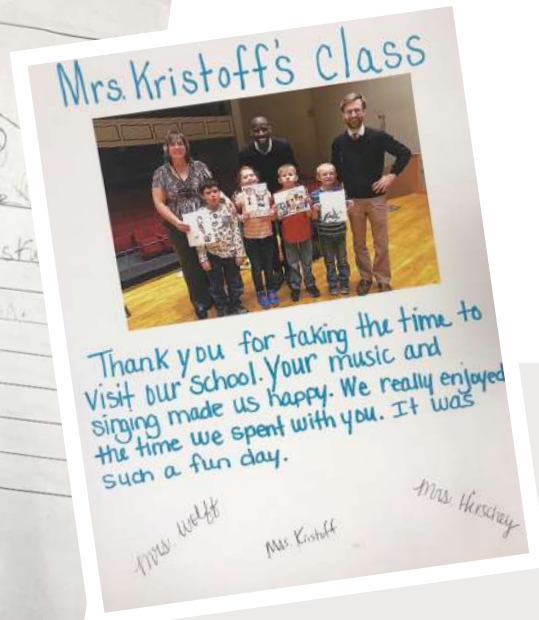 Mrs. Kristoff's Class
Thank you for taking the time to
visit our school. Your music and
singing made us happy. We really enjoyed
the time we spent with you. It was
such a fun day.
Mrs. Wolff
Mrs. Kristoff
Mrs. Herschey